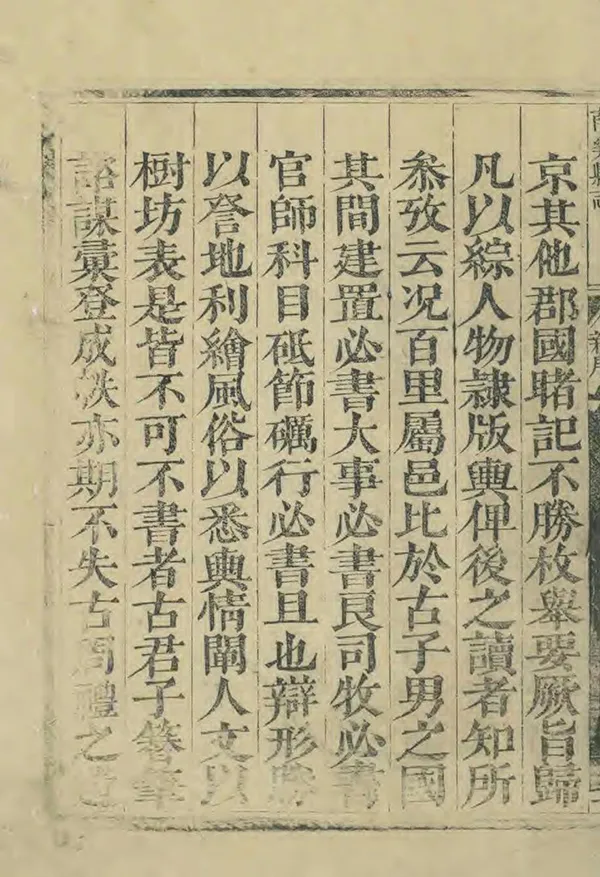 京其他郡國睹記不勝枚舉要厥旨歸
凡以綜人物隷版輿俾後之讀者知所
叅攷云况百里屬邑比於古子男之國
其間建置必書大事必書良司牧必書
官師科目砥節礪行必書且也辯形勝
以詟地利繪風俗以悉輿情闡人文以
樹坊表是皆不可不書者古君子簪筆
諮謀彙登成帙亦期不失古周禮之